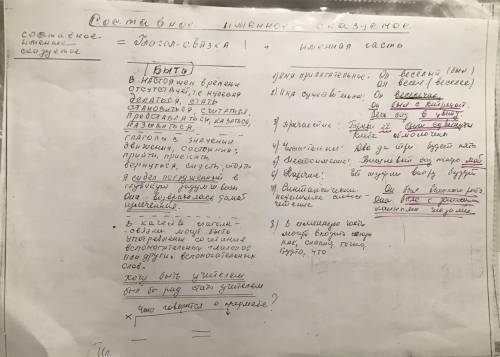 Составное именное сказуемое
составное
именное
сказуемое
= Глагол-связка + именная часть
БЫТЬ
В настоящем времени
отсутствует, т.е. нулевая
делаться, стать
становиться, считаться
представляться, казаться
называться,
глаголы со значением
движения, состояния:
прийти, приехать,
вернуться, сидеть, стоять
Я сидел погруженный в
глубокую задумчивость
Она возвращалась домой
измученная.
В качестве глагола-
связки могут быть
употреблены сочетания
вспомогательных глаголов
или других вспомогательных
слов.
Хочу быть учителем
был бы рад стать учителем
Что говорится о предмете?
1) имя прилагательное: Он веселый (был)
Он весел (веселее)
2) Имя существительное: Он
Он был с
Весь сад в цвету
3) причастие:
4) Числительное: Два да три будет пять
5) Местоимение: Вишневый сад теперь мой
6) Наречие:
7) Синтаксически Он был высокого роста
неделимое слово- Она была с
сочетание
8) В именную часть
могут входить союзы
как, словно, точно,
будто, что